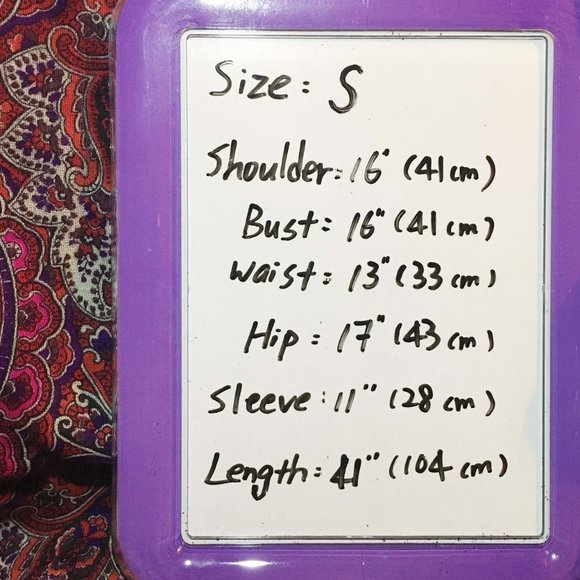 Size: S
Shoulder: 16" (41cm)
Bust: 16" (41cm)
Waist: 13" (33cm)
Hip: 17" (43cm)
Sleeve: 11" (28cm)
Length: 41" (104cm)